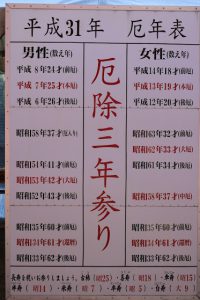 平成31年 厄年表
男性(数え年)
平成 8年24才(前厄)
平成 7年25才(本厄)
平成 6年26才(後厄)
昭和58年37才(厄入り)
昭和54年41才(前厄)
昭和53年42才(大厄)
昭和52年43才(後厄)
昭和35年60才(前厄)
昭和34年61才(還暦)
昭和33年62才(後厄)
厄除三年参り
女性(数え年)
平成14年18才(前厄)
平成13年19才(本厄)
平成12年20才(後厄)
昭和63年32才(前厄)
昭和62年33才(大厄)
昭和61年34才(後厄)
昭和58年37才(中厄)
昭和35年60才(前厄)
昭和34年61才(還暦)
昭和33年62才(後厄)
長寿を祝いお参りしましょう。古稀(昭25)・喜寿(昭18)・傘寿(昭15)
半寿(昭14)・米寿(昭7)・卒寿(昭5)・白寿